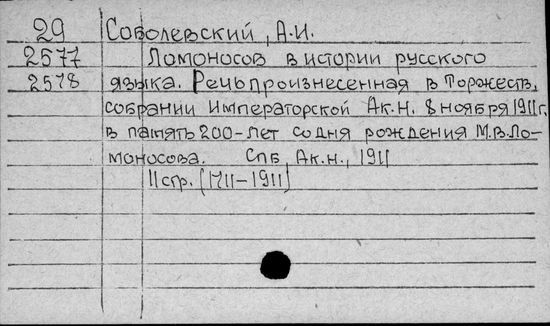 29 Соболевский, А.И.
2577 Ломоносов в истории русского
2578 языка. Речь произнесенная в Торжеств.
собрании Императорской Ак.Н. 8 ноября 1911г.
в память 200-лет со дня рождения М.В.Ло-
моносова. Спб, Ак.н., 1911
11стр. [1711-1911]